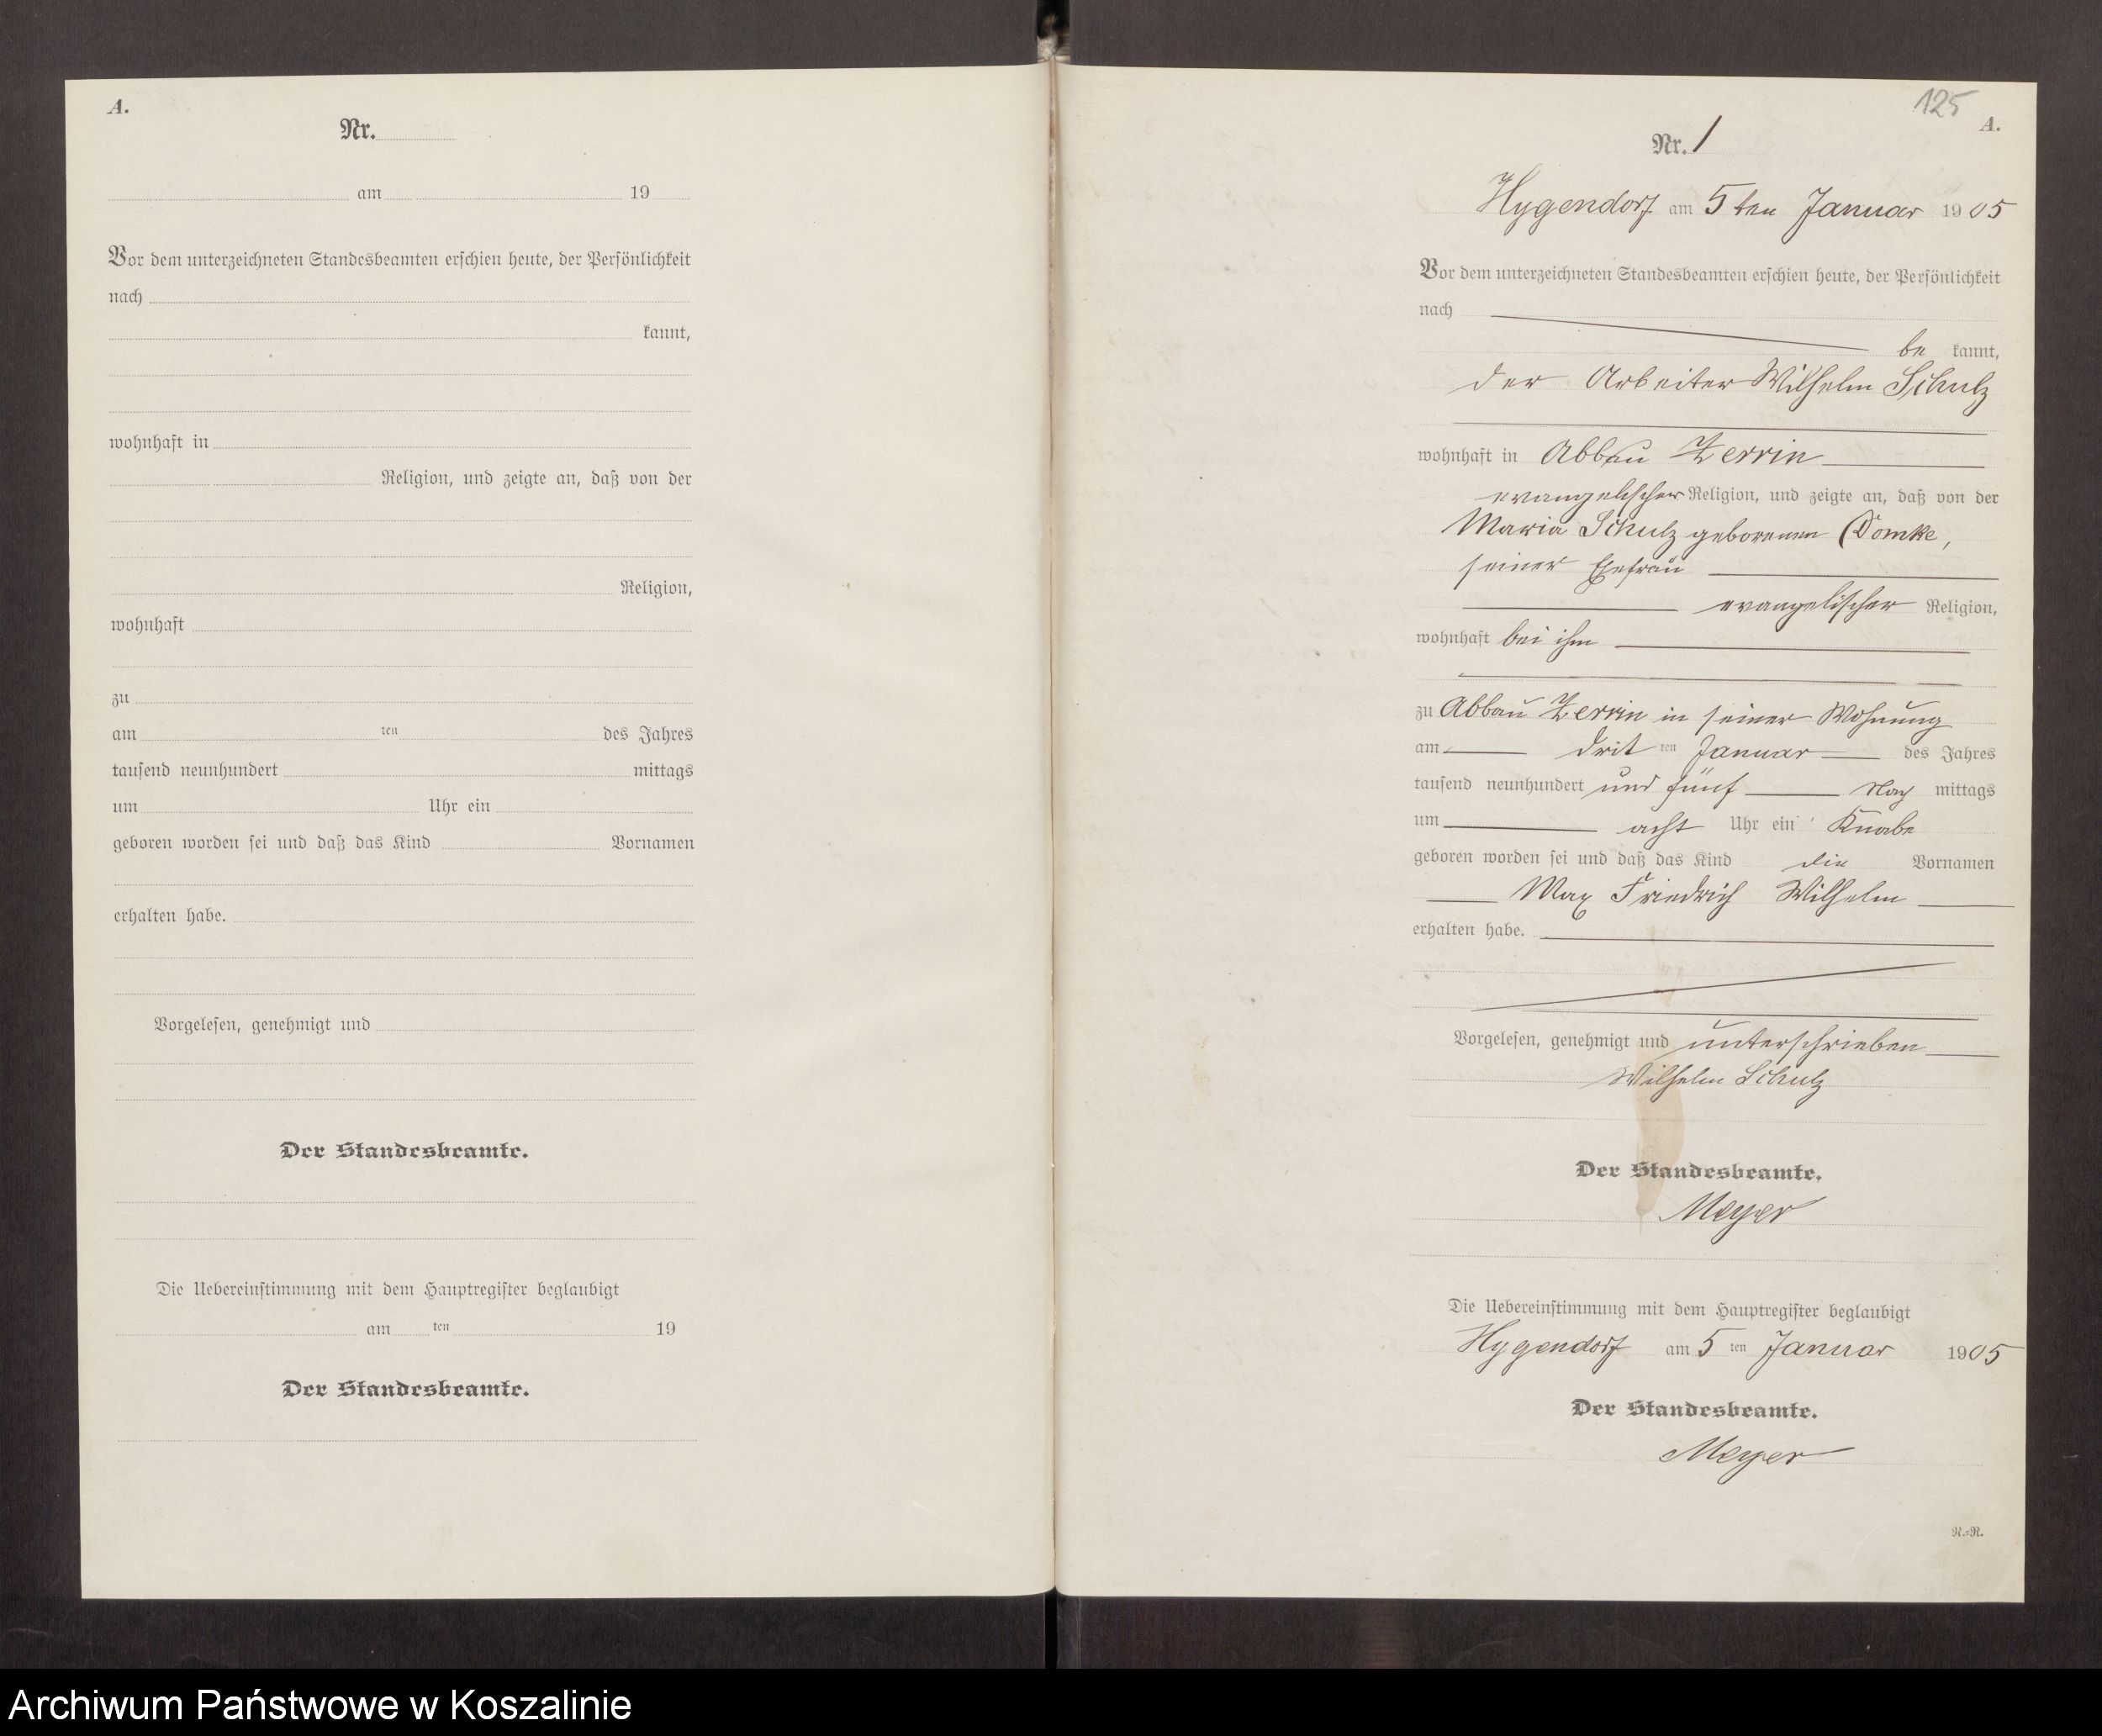 A.
Nr.
am 19
Vor dem unterzeichneten Standesbeamten erschien heute, der Persönlichkeit
nach
kannt,
wohnhaft in
Religion, und zeigte an, daß von der
Religion,
wohnhaft
zu
am ten des Jahres
tausend neunhundert mittags
um Uhr ein
geboren worden sei und daß das Kind Vornamen
erhalten habe.
Vorgelesen, genehmigt und
Der Standesbeamte.
Die Uebereinstimmung mit dem Hauptregister beglaubigt
am ten 19
Der Standesbeamte.
125
A.
Nr. 1
Hygendorf am 5ten Januar 1905
Vor dem unterzeichneten Standesbeamten erschien heute, der Persönlichkeit
nach
be kannt,
der Arbeiter Wilhelm Schulz
wohnhaft in Abbau Zerrin
evangelischer Religion, und zeigte an, daß von der
Maria Schulz geborenen Domke,
seiner Ehefrau
evangelischer Religion,
wohnhaft bei ihm
zu Abbau Zerrin in seiner Wohnung
am drit ten Januar des Jahres
tausend neunhundert und fünf Nach mittags
um acht Uhr ein Knabe
geboren worden sei und daß das Kind die Vornamen
Max Friedrich Wilhelm
erhalten habe.
Vorgelesen, genehmigt und unterschrieben
Wilhelm Schulz
Der Standesbeamte.
Meyer
Die Uebereinstimmung mit dem Hauptregister beglaubigt
Hygendorf am 5 ten Januar 1905
Der Standesbeamte.
Meyer
N.=R.
Archiwum Państwowe w Koszalinie